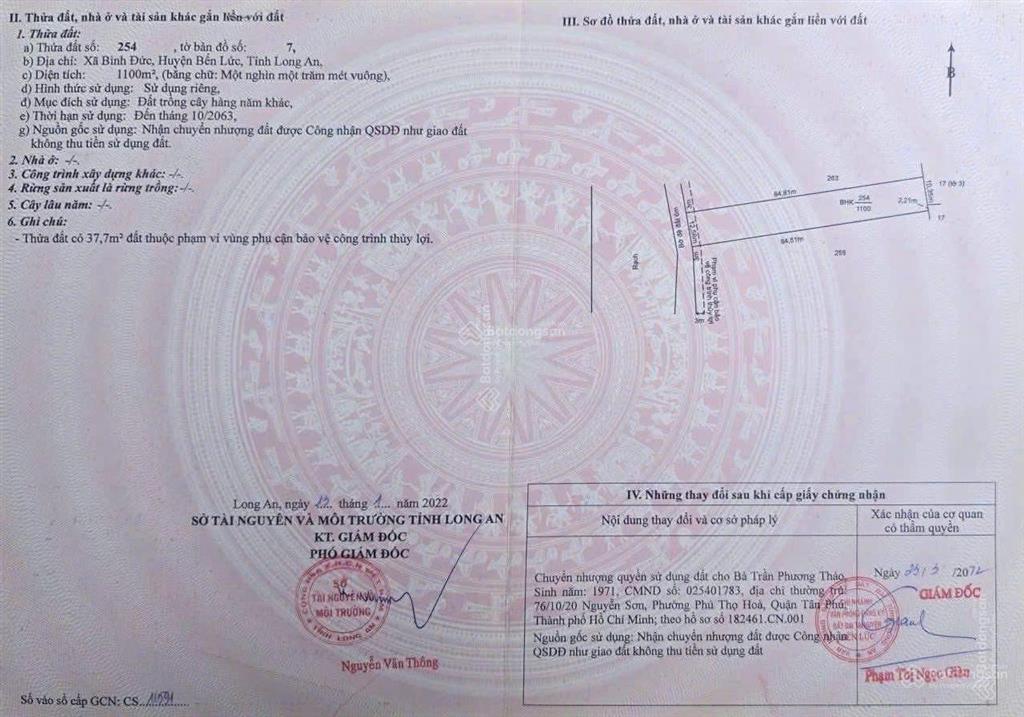 II. Thửa đất, nhà ở và tài sản khác gắn liền với đất
1. Thửa đất:
a) Thửa đất số: 254 , tờ bản đồ số: 7,
b) Địa chỉ: Xã Bình Đức, Huyện Bến Lức, Tỉnh Long An,
c) Diện tích: 1100m², (bằng chữ: Một nghìn một trăm mét vuông),
d) Hình thức sử dụng: Sử dụng riêng,
đ) Mục đích sử dụng: Đất trồng cây hàng năm khác,
e) Thời hạn sử dụng: Đến tháng 10/2063,
g) Nguồn gốc sử dụng: Nhận chuyển nhượng đất được Công nhận QSDĐ như giao đất
không thu tiền sử dụng đất.
2. Nhà ở: -/-.
3. Công trình xây dựng khác: -/-.
4. Rừng sản xuất là rừng trồng: -/-.
5. Cây lâu năm: -/-.
6. Ghi chú:
- Thửa đất có 37,7m² đất thuộc phạm vi vùng phụ cận bảo vệ công trình thủy lợi.
Long An, ngày 12 tháng 1 năm 2022
SỞ TÀI NGUYÊN VÀ MÔI TRƯỜNG TỈNH LONG AN
KT. GIÁM ĐỐC
PHÓ GIÁM ĐỐC
SỞ
TÀI NGUYÊN VÀ
MÔI TRƯỜNG
TỈNH LONG AN
Nguyễn Văn Thông
Số vào sổ cấp GCN: CS
III. Sơ đồ thửa đất, nhà ở và tài sản khác gắn liền với đất
B
263
84,81m
17 (tờ 3)
10,95m
BHK 254
1100
2,21m
17
84,51m
259
Bờ đê đất 6m
3m
3m
Rạch
Phạm vi phụ cận bảo
vệ công trình thủy lợi
3m
Batdongsan
IV. Những thay đổi sau khi cấp giấy chứng nhận
Nội dung thay đổi và cơ sở pháp lý
Xác nhận của cơ quan
có thẩm quyền
Chuyển nhượng quyền sử dụng đất cho Bà Trần Phương Thảo,
Sinh năm: 1971, CMND số: 025401783, địa chỉ thường trú:
76/10/20 Nguyễn Sơn, Phường Phú Thọ Hoà, Quận Tân Phú,
Thành phố Hồ Chí Minh; theo hồ sơ số 182461.CN.001
Nguồn gốc sử dụng: Nhận chuyển nhượng đất được Công nhận
QSDĐ như giao đất không thu tiền sử dụng đất
Ngày 23/3 /2022
GIÁM ĐỐC
CHI NHÁNH
VĂN PHÒNG ĐĂNG KÝ
ĐẤT ĐAI TẠI HUYỆN
BẾN LỨC
Phạm Thị Ngọc Giàu